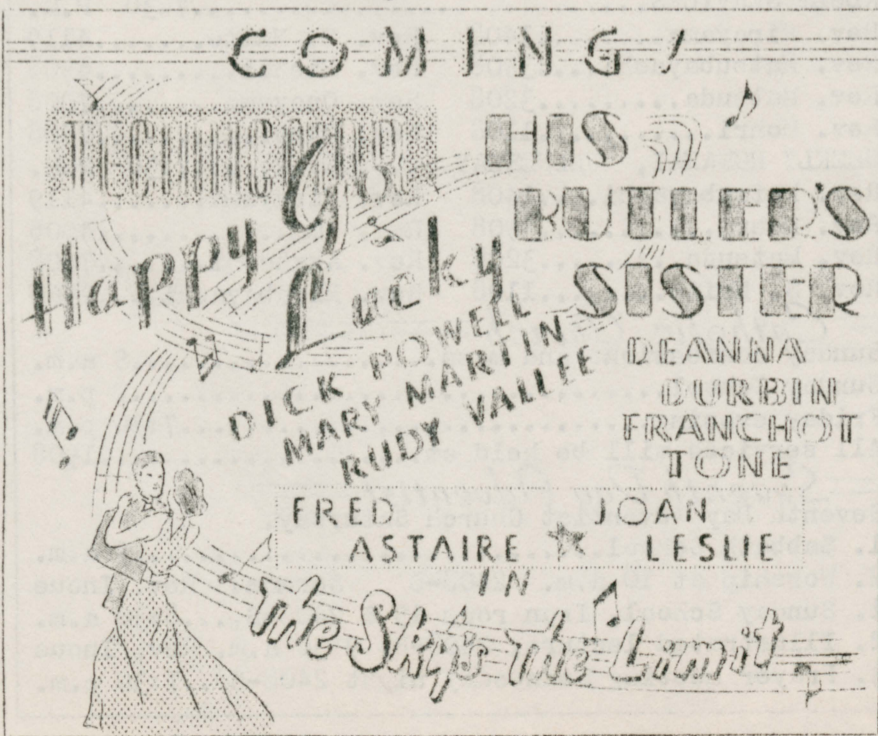 COMING!
Happy Go
Lucky
DICK POWELL
MARY MARTIN
RUDY VALLEE
HIS
BUTLER'S
SISTER
DEANNA
DURBIN
FRANCHOT
TONE
FRED JOAN
ASTAIRE LESLIE
IN
The Sky's The Limit